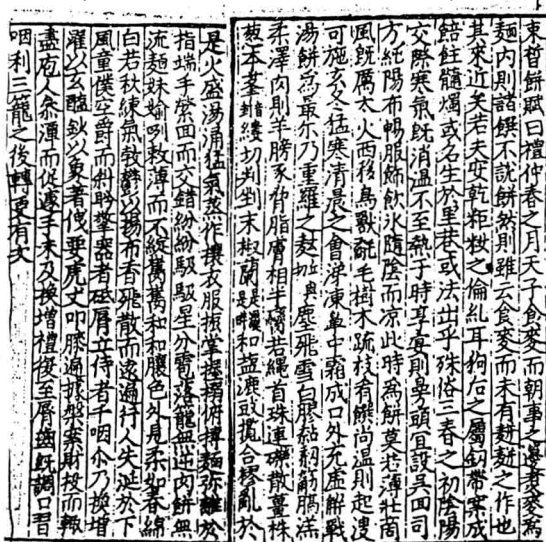 束晳餅賦曰禮仲春之月天子食麥而朝事之籩煮麥為
麵内則諸饌不說餅然則雖云食麥而未有之作也
其來近矣若夫安乾粔籹之倫耳狗之屬釰帶案成
餢飳髓燭或名生於里巷或法出乎殊俗三春之初陰陽
交際寒氣旣消温不至熱于時享宴則曼頭宜設吳囬司
方純陽布暢服飾飲氷隨陰而凉此時為餅莫若薄壮商
風旣厲大火西移鳥獸氄毛樹木疏枝肴饌尚温則起溲
可施玄冬猛寒清晨之會涕凍鼻中霜成口外充虚解戰
湯餅為最尒乃重羅之麪塵飛雪白膠黏筋
柔澤肉則羊膀豕脅脂膚相半臠若繩首珠連礫散薑株
葱本縷切判剉末椒蘭是灑是畔和塩漉豉攬合樛亂於
是火盛湯涌猛氣蒸作攘衣服振掌握搦俯搏麵弥離於
指端手縈囬而交錯紛紛馺馺星分雹落籠無迸肉餅無
流麺姝媮咧敕薄而不綻嶲嶲和和色外見柔如春綿
白若秋練氣勃鬱以揚布香飛散而遠遍行人失涎於下
風童僕空爵而斜眄擎器者砥脣立侍者干咽尒乃換増
濯以玄醢鈔以象著伸要虎丈叩膝遍據槃案財投而輒
盡庖人參潭而促遽手未及換増禮復至脣齒旣調口習
咽利三籠之後轉更有文